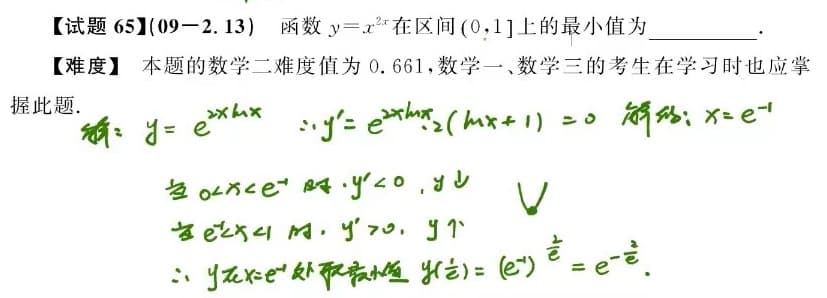 【试题 65】(09－2.13) 函数 y=x^{2x} 在区间(0,1]上的最小值为________.
【难度】 本题的数学二难度值为 0.661,数学一、数学三的考生在学习时也应掌
握此题.
解: y = e^{2xlnx} ∴ y' = e^{2xlnx}·2(lnx+1) = 0 解得: x = e^{-1}
当 0<x<e^{-1} 时, y'<0, y↓
当 e^{-1}<x<1 时, y'>0, y↑
∴ y在x=e^{-1}处取最小值 y(1/e) = (e^{-1})^{2/e} = e^{-2/e}.